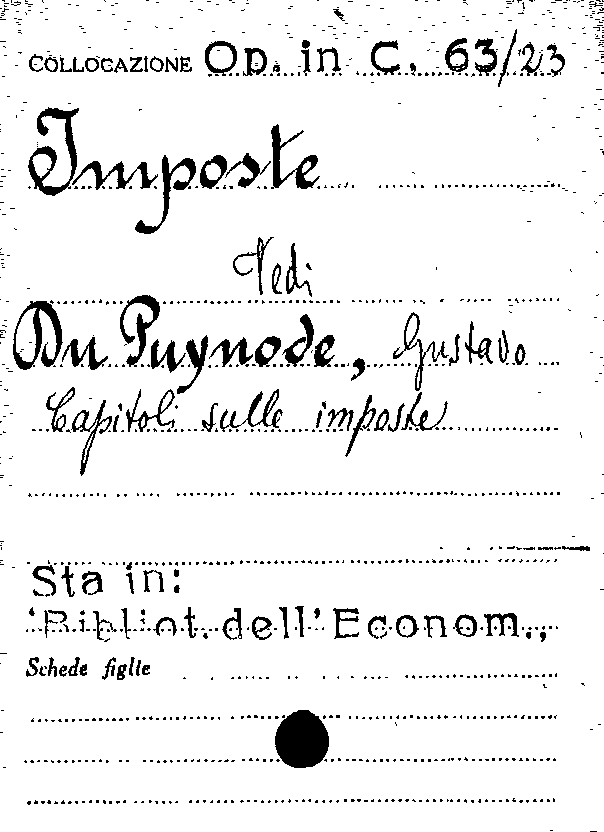 COLLOCAZIONE Op. in C. 63/23
Imposte
Vedi
Du Puynode, Gustavo
Capitoli sulle imposte
Sta in:
'Bibliot. dell' Econom.,
Schede figlie